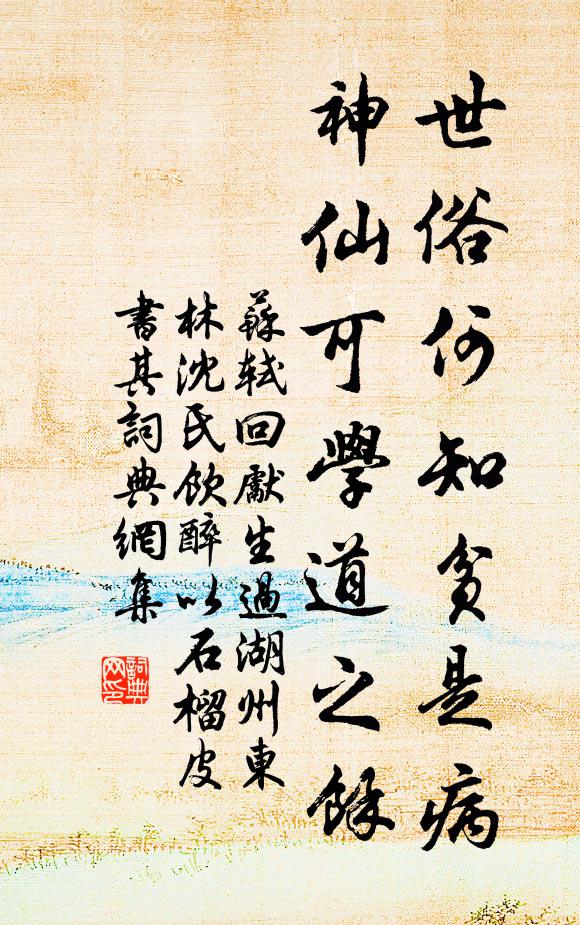 世俗何知貧是病
神仙可學道之餘
蘇軾回獻生過湖州東
林沈氏飲醉以石榴皮
書其詞典網集
詞典
网印